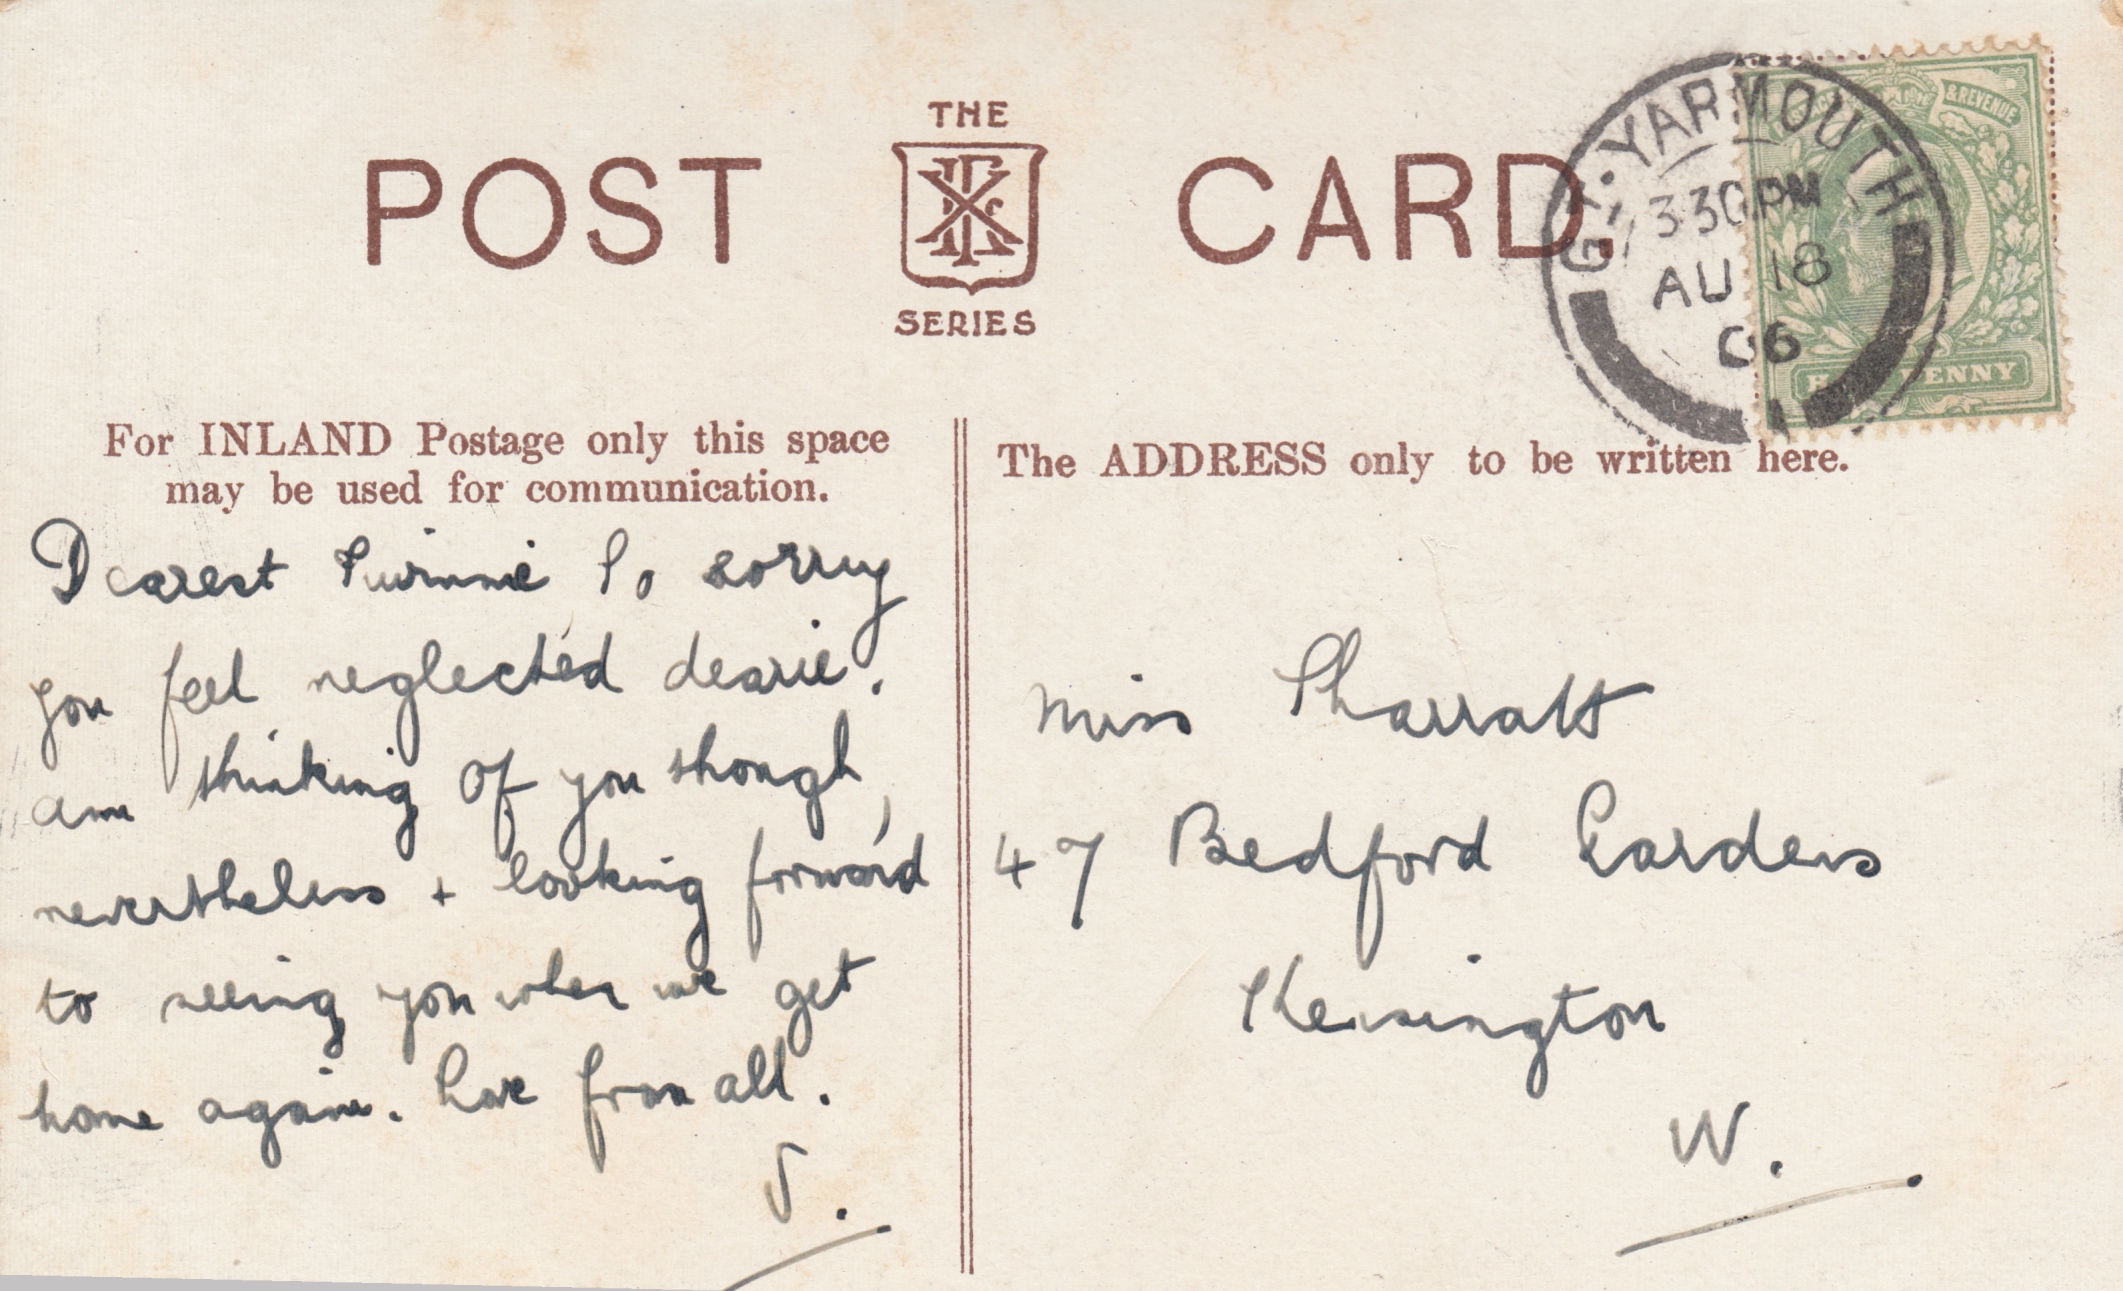 THE
POST CARD.
SERIES
GT. YARMOUTH
3 30 PM
AU 18
06
& REVENUE
HALFPENNY
For INLAND Postage only this space
may be used for communication.
The ADDRESS only to be written here.
Dearest So sorry
you feel neglected dearie.
am thinking of you though,
nevertheless + looking forward
to seeing you when we get
home again. Love from all.
S.
Miss Sharratt
47 Bedford Gardens
Kensington
W.